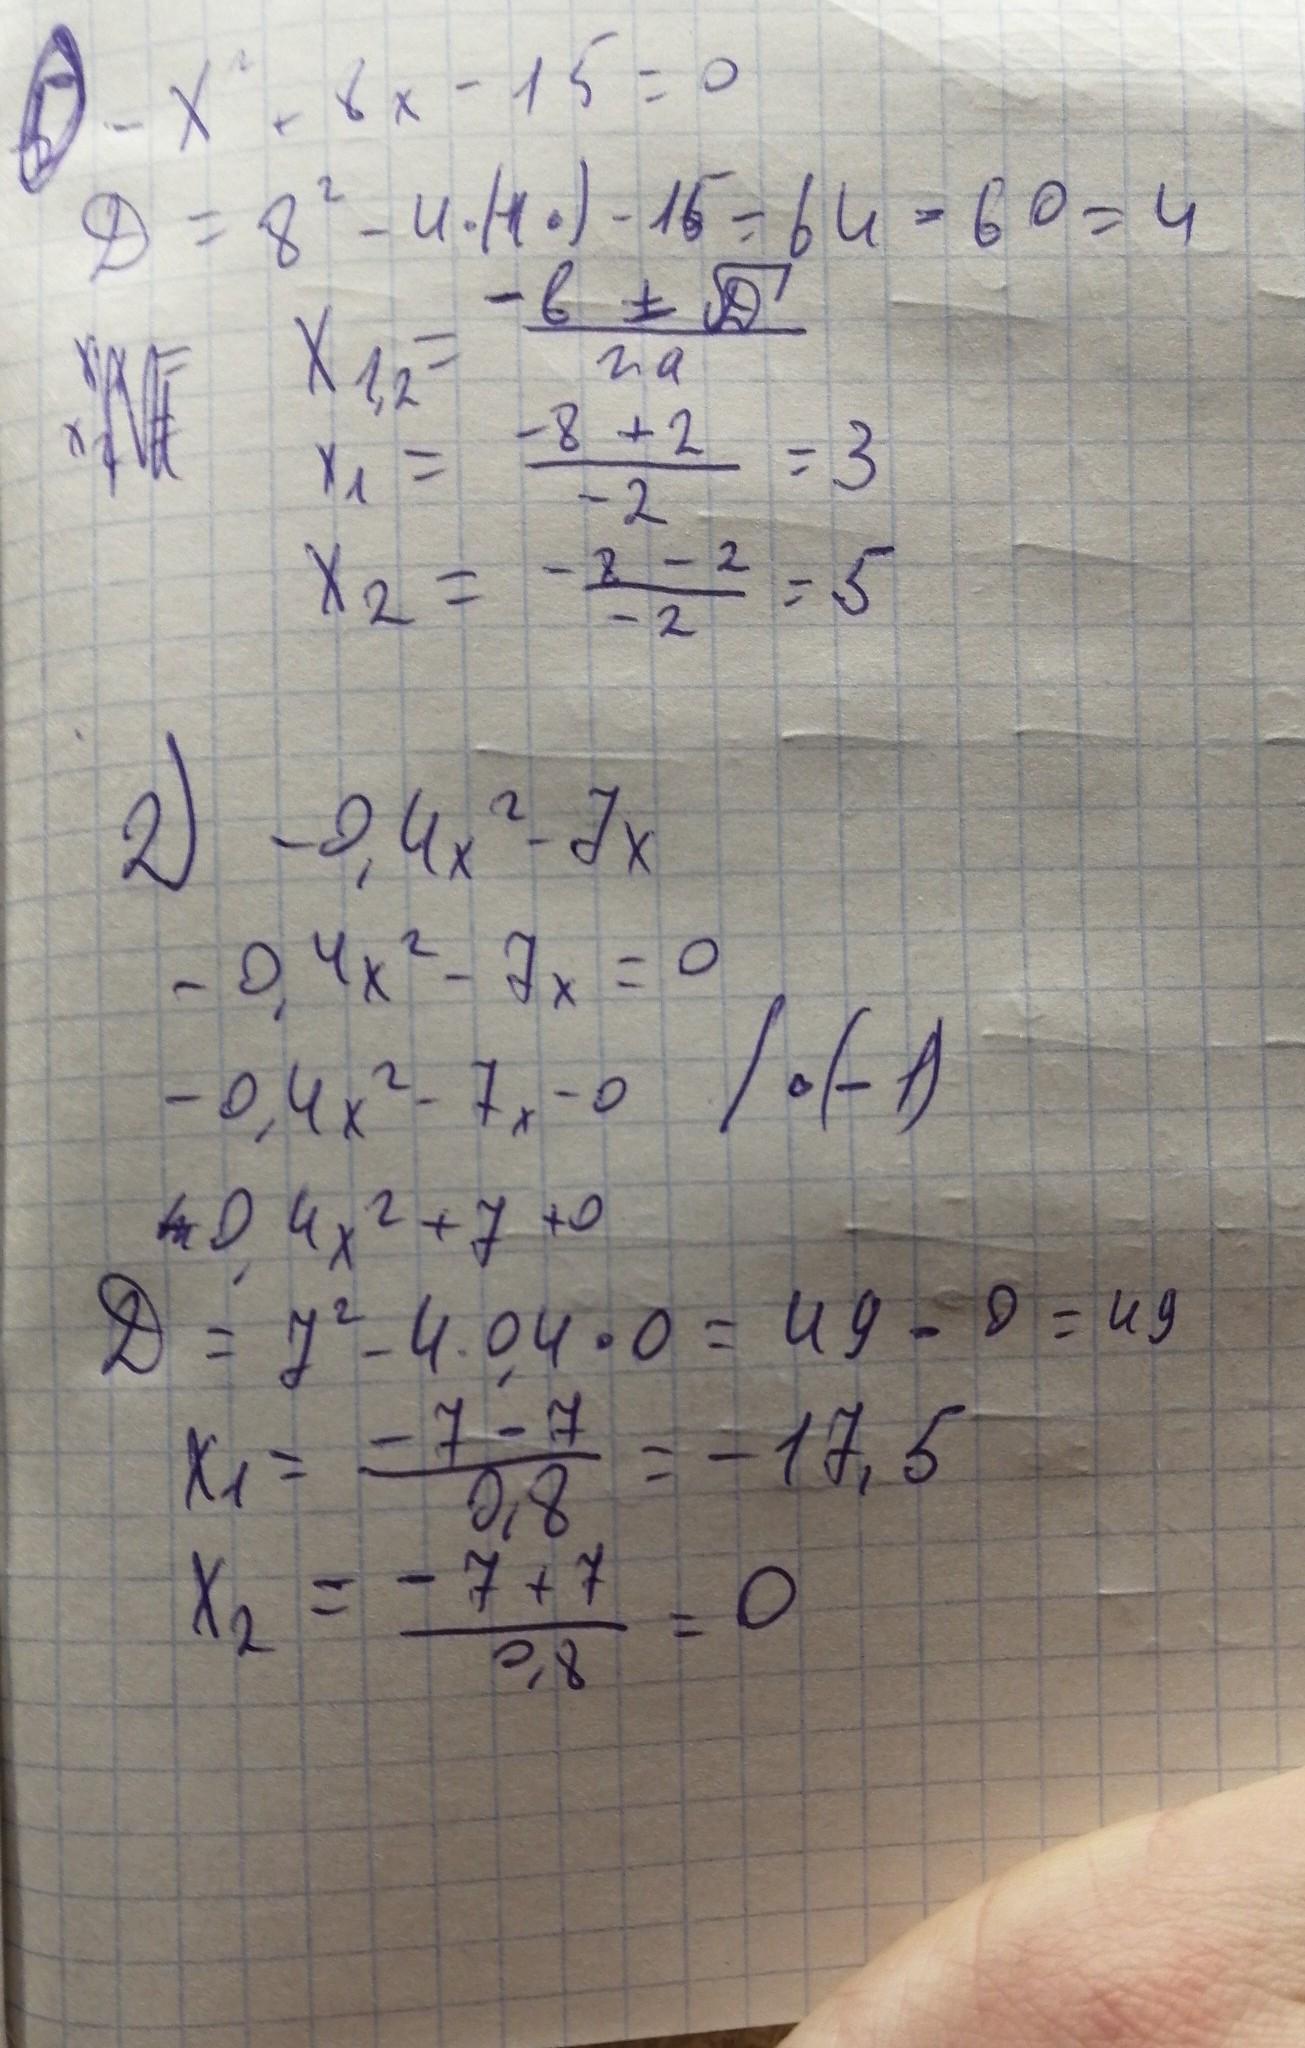 - x² + 8x - 15 = 0
D = 8² - 4·(-1·) - 15 = 64 - 60 = 4
x₁,₂ = (-b ± √D) / 2a
x₁ = (-8 + 2) / -2 = 3
x₂ = (-8 - 2) / -2 = 5
2) -0,4x² - 7x
-0,4x² - 7x = 0
-0,4x² - 7x - 0 / · (-1)
0,4x² + 7 + 0
D = 7² - 4·0,4·0 = 49 - 0 = 49
x₁ = (-7 - 7) / 0,8 = -17,5
x₂ = (-7 + 7) / 0,8 = 0